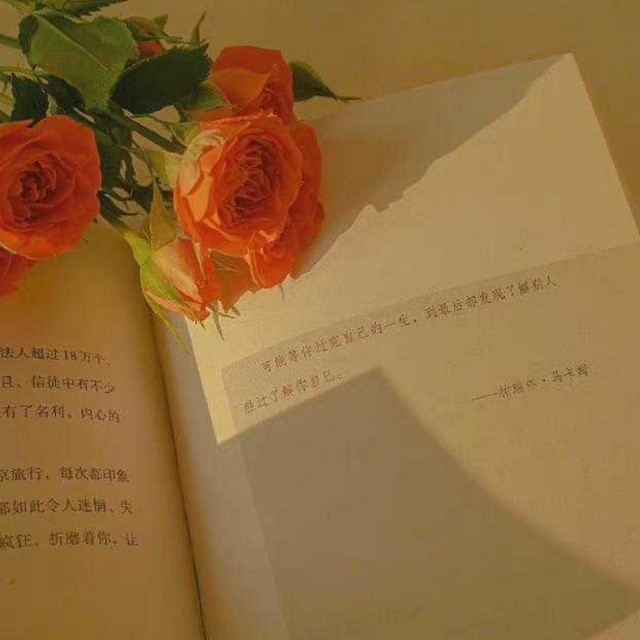 法人超过18万个、
且、信徒中有不少
有了名利，内心的
京旅行，每次都印象
都如此令人迷惘、失
疯狂、折磨着你，让
。
可能等你过完自己的一生，到最后却发现了解别人
胜过了解你自己。
——菲瑞·马卡姆